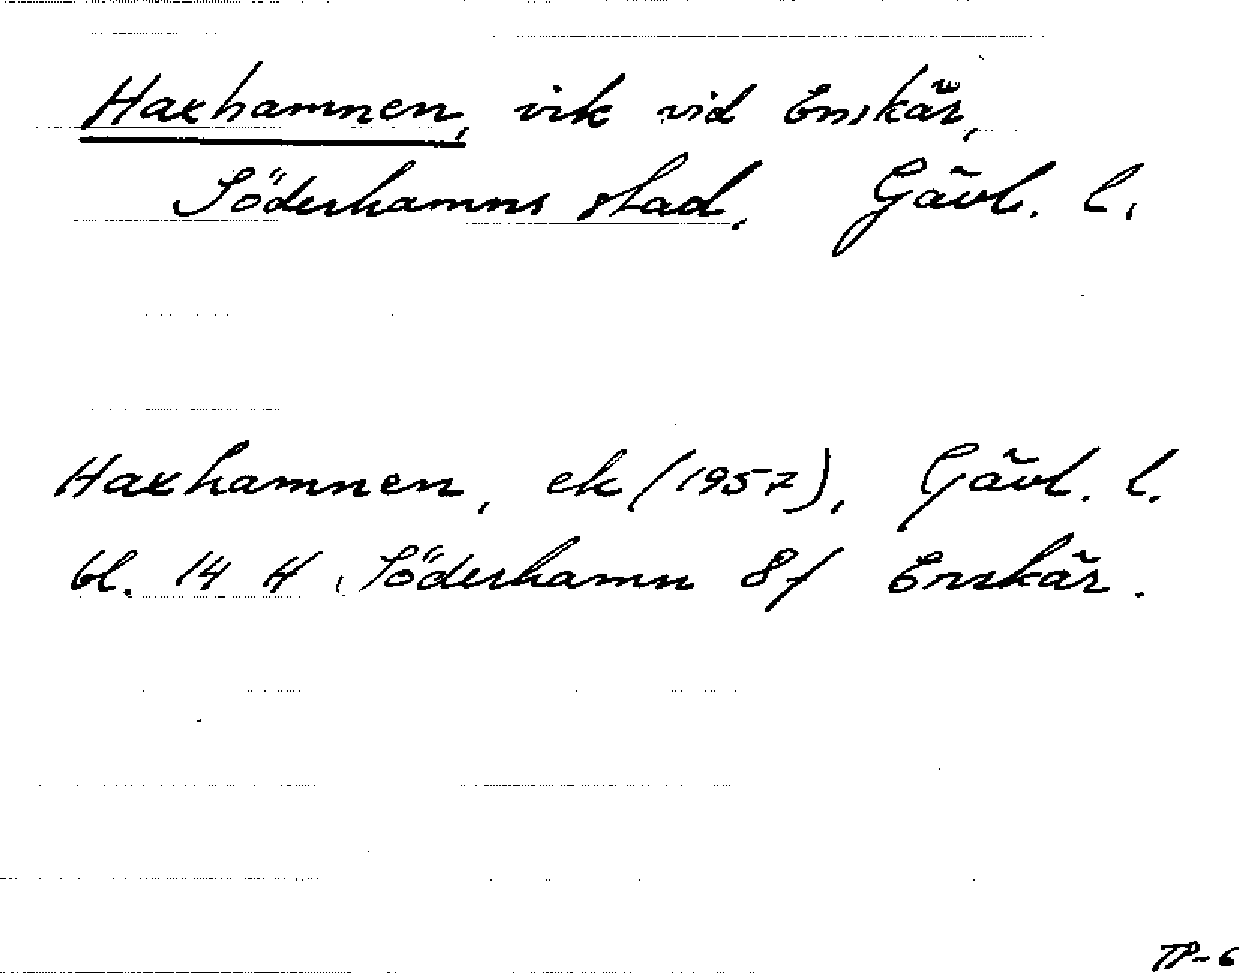 Haxhamnen, vik vid Enskär,
Söderhamns stad. Gävl. l.
Haxhamnen, ek (1957), Gävl. l.
bl. 14 H Söderhamn 8f Enskär.
TP-6